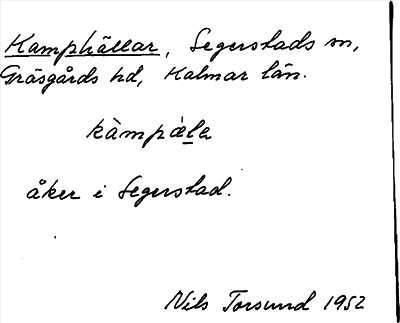 Kamphällar, Segerstads sn,
Gräsgårds hd, Kalmar län.
kàmpàla
åker i Segerstad.
Nils Torsund 1952